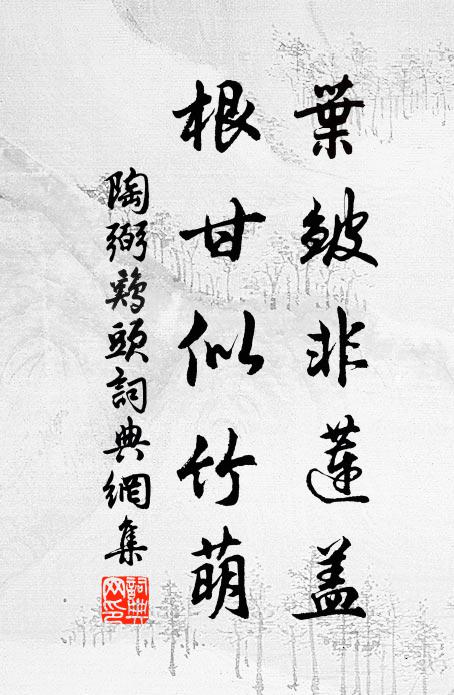 葉皺非蓮蓋
根甘似竹萌
陶弼鷄頭詞典網集